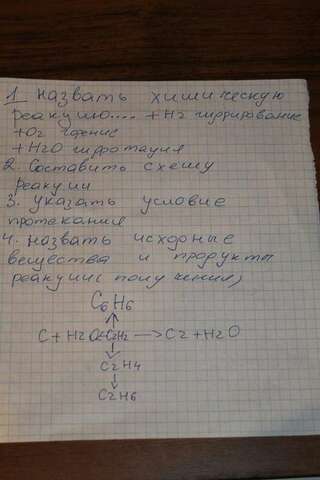 1 назвать химическую
реакцию.... +H2 гидрирование
+O2 горение
+H2O гидротация
2. Составить схему
реакции
3. указать условие
протекания
4. назвать исходные
вещества и продукты
реакции( получения)
C6H6
C + H2O<-C2H2 -> C2 + H2O
C2H4
C2H6